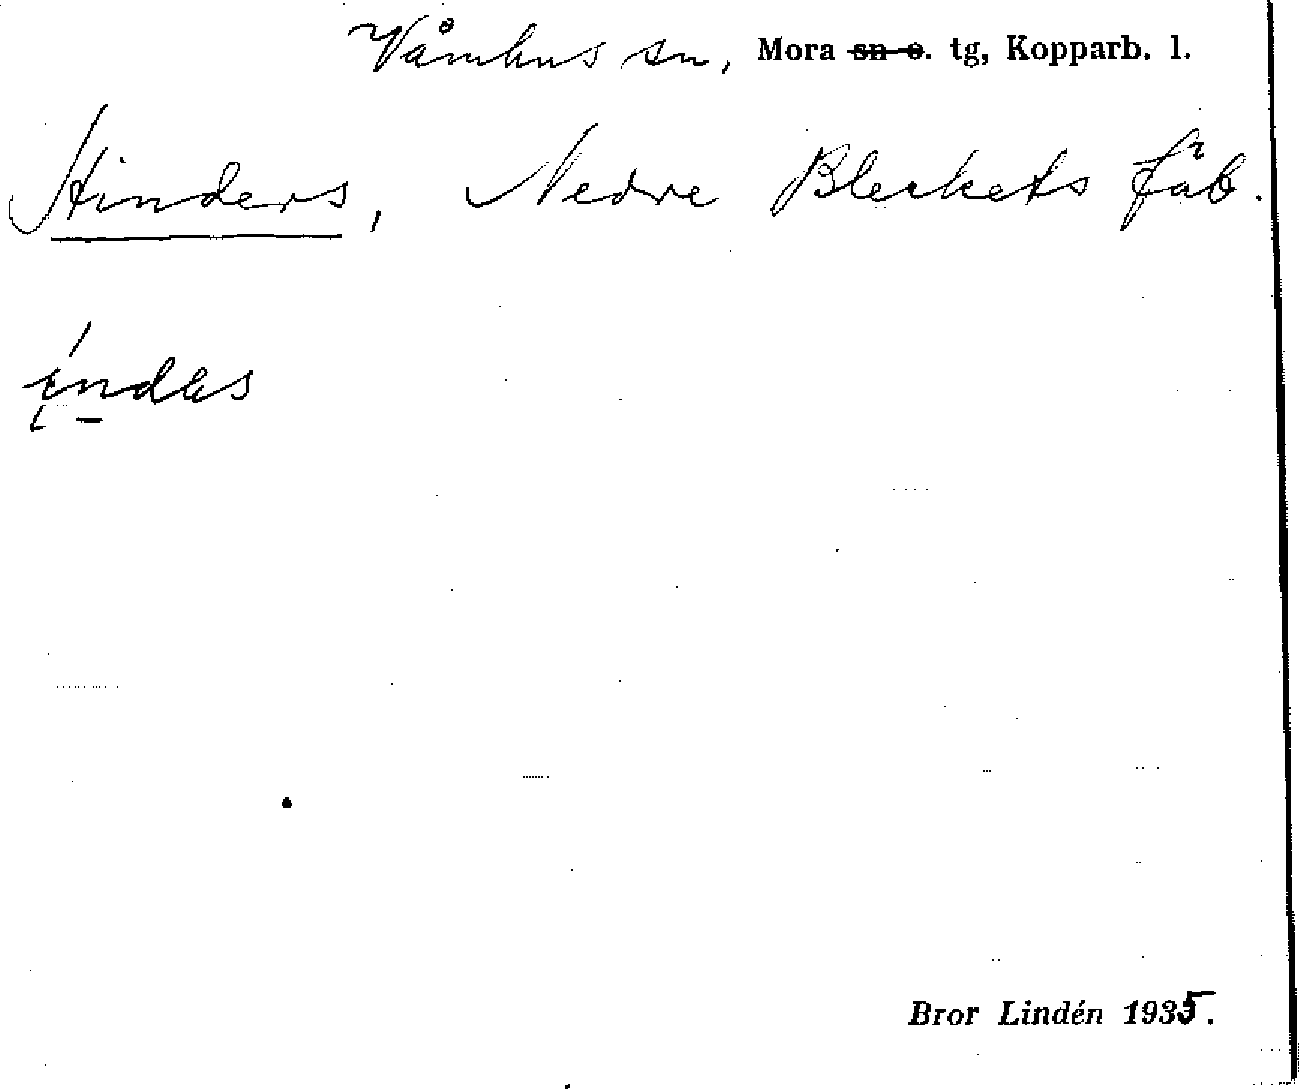 Våmhus sn, Mora sn o. tg, Kopparb. l.
Hinders, Nedre Bleckets fäb.
índas
Bror Lindén 1935.